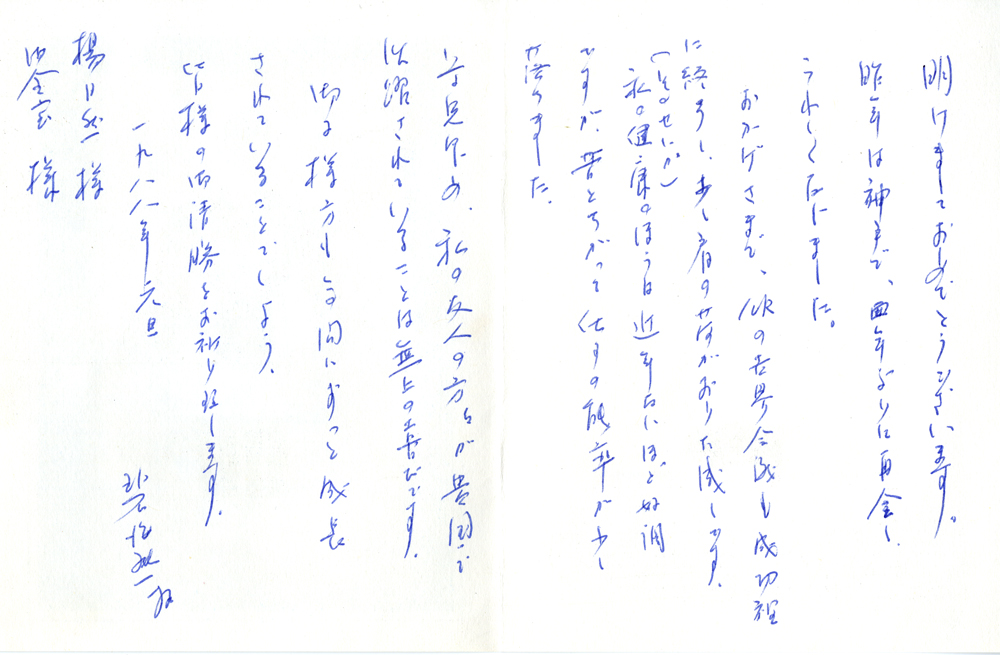 明けましておめでとうございます。
昨年は神戸で、四年ぶりに再会し、
うれしく存じました。
おかげさまで、の世界会議も成功裡
に終了し、少し肩の荷がおりた感じです。
(そのせいか)
私の健康のほうは近年にないほど好調
ですが、昔とちがって仕事の能率が少し
落ちました。
を見るにつけ、私の友人の方々が貴国で
活躍されていることは無上の喜びです。
御子様方もこの間にずっと成長
されていることでしょう。
皆様の御清勝をお祈り致します。
一九八八年元旦
楊日然様
御全家様